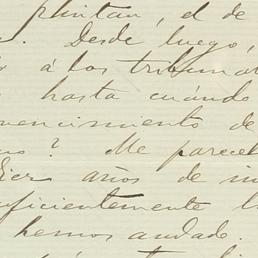 plintan, el de
Desde luego,
á los tribuna
hasta cuándo
uencimiento de
? Me parece
Diez años de in
uficientemente l
hemos andado.